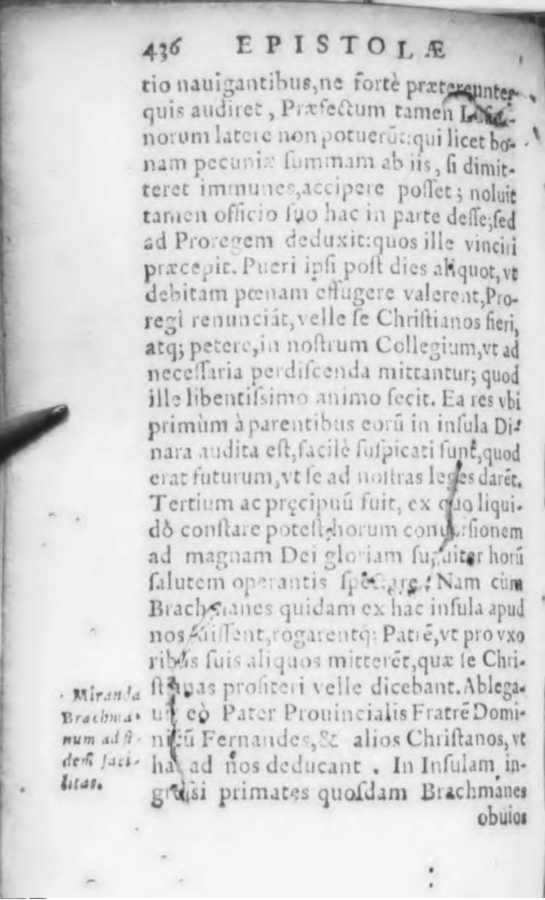 436 EPISTOLÆ
tio nauigantibus, ne fortè prætereuntes
quis audiret, Præfectum tamen
norum latere non potuerũt: qui licet bo-
nam pecuniæ summam ab iis, si dimit-
teret immunes, accipere posset; noluit
tamen officio suo hac in parte deesse; sed
ad Proregem deduxit: quos ille vinciri
præcepit. Pueri ipsi post dies aliquot, vt
debitam pœnam effugere valerent, Pro-
regi renunciãt, velle se Christianos fieri,
atq; petere, in nostrum Collegium, vt ad
necessaria perdiscenda mittantur; quod
ille libentissimo animo fecit. Ea res vbi
primùm à parentibus eorũ in insula Di-
nara audita est, facilè suspicati sunt, quod
erat futurum, vt se ad nostras leges darẽt.
Tertium ac pręcipuũ fuit, ex quo liqui-
dò constare potest, horum conuersionem
ad magnam Dei gloriam suauiter horũ
salutem operantis spectare. Nam cùm
Brachmanes quidam ex hac insula apud
nos fuissent, rogarentq; Patrẽ, vt pro vxo
ribus suis aliquos mitterẽt, quæ se Chri-
stianas profiteri velle dicebant. Ablega-
uit eò Pater Prouincialis Fratrẽ Domi-
nicũ Fernandes, & alios Christanos, vt
has ad nos deducant. In Insulam in-
gressi primates quosdam Brachmanes
obuios
Miranda
Brachma-
num ad fi-
dem faci-
litas.